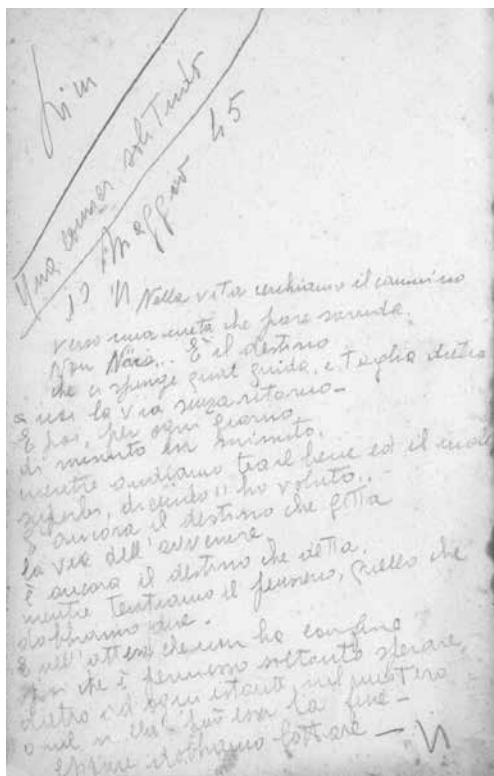 Una comer solitudo
17 Maggio 45
" Nella vita cerchiamo il cammino
verso una meta che pare sorrida.
Non ... È il destino
che ci spinge qual guida, e taglia dietro
a noi la via senza ritorno -
E poi, per ogni giorno,
di minuto in minuto,
mentre andiamo tra il bene ed il male
superbi, dicendo " ho voluto..
È ancora il destino che getta
la via dell'avvenire,
è ancora il destino che detta,
mentre tentiamo il pensiero, quello che
dobbiamo dire.
E nell'attesa che non ha confine
poi che è permesso soltanto sperare,
dietro ad ogni istante nel mistero
può esser la fine -
eppure dobbiamo lottare - "